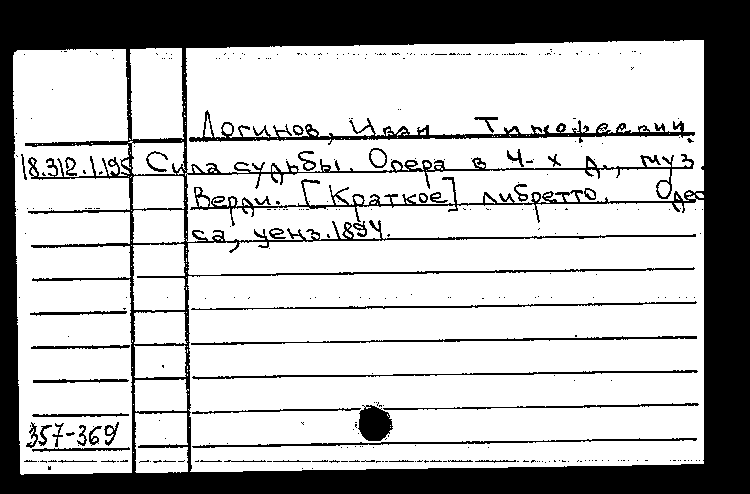 Логинов, Иван Тимофеевич.
18.312.1.195 Сила судьбы. Опера в 4-х д., муз.
Верди. [Краткое] либретто. Одес
са, ценз. 1894.
357-369